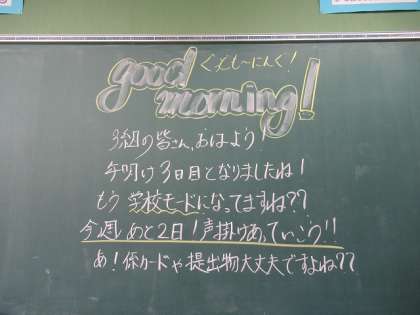 good ぐっともーにんぐ!
morning!
3組の皆さん、おはよう!
年明け3日目となりましたね!
もう学校モードになってますね??
今週あと2日!声掛けあっていこう!!
あ!係カードや提出物大丈夫ですよね??